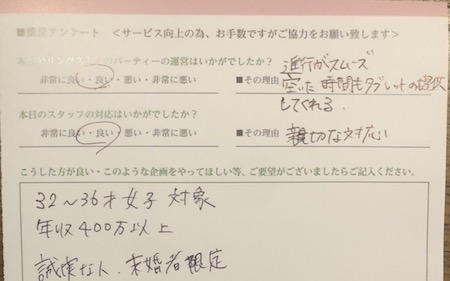 ■簡易アンケート ＜サービス向上の為、お手数ですがご協力をお願い致します＞
パーティーの運営はいかがでしたか？
非常に良い・良い・悪い・非常に悪い
■その理由 進行がスムーズ
空いた時間もタブレットの提供
してくれる。
本日のスタッフの対応はいかがでしたか？
非常に良い・良い・悪い・非常に悪い
■その理由 親切な対応い
こうした方が良い・このような企画をやってほしい等、ご要望がございましたらご記入ください。
32～36才女子対象
年収400万以上
誠実な人、未婚者限定